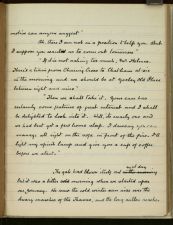 motive can anyone suggest"
"Ah, there I am not in a position to help you. But
I suppose you wanted us to come out tomorrow."
"If it is not asking too much, Mr Holmes.
There's a train from Charing Cross to Chatham at six
in the morning and we should be at Yoxley Old Place
between eight and nine."
"Then we shall take it. Your case has
certainly some features of great interest and I shall
be delighted to look into it. Well, it's nearly one and
we had best get a few hours sleep. I daresay you can
manage all right on the sofa in front of the fire. I'll
light my spirit lamp and give you a cup of coffee
before we start."
next day
The gale had blown itself out
but it was a bitter cold morning when we started upon
our journey. We saw the cold winter sun rise over the
dreary marshes of the Thames, and the long sullen reaches